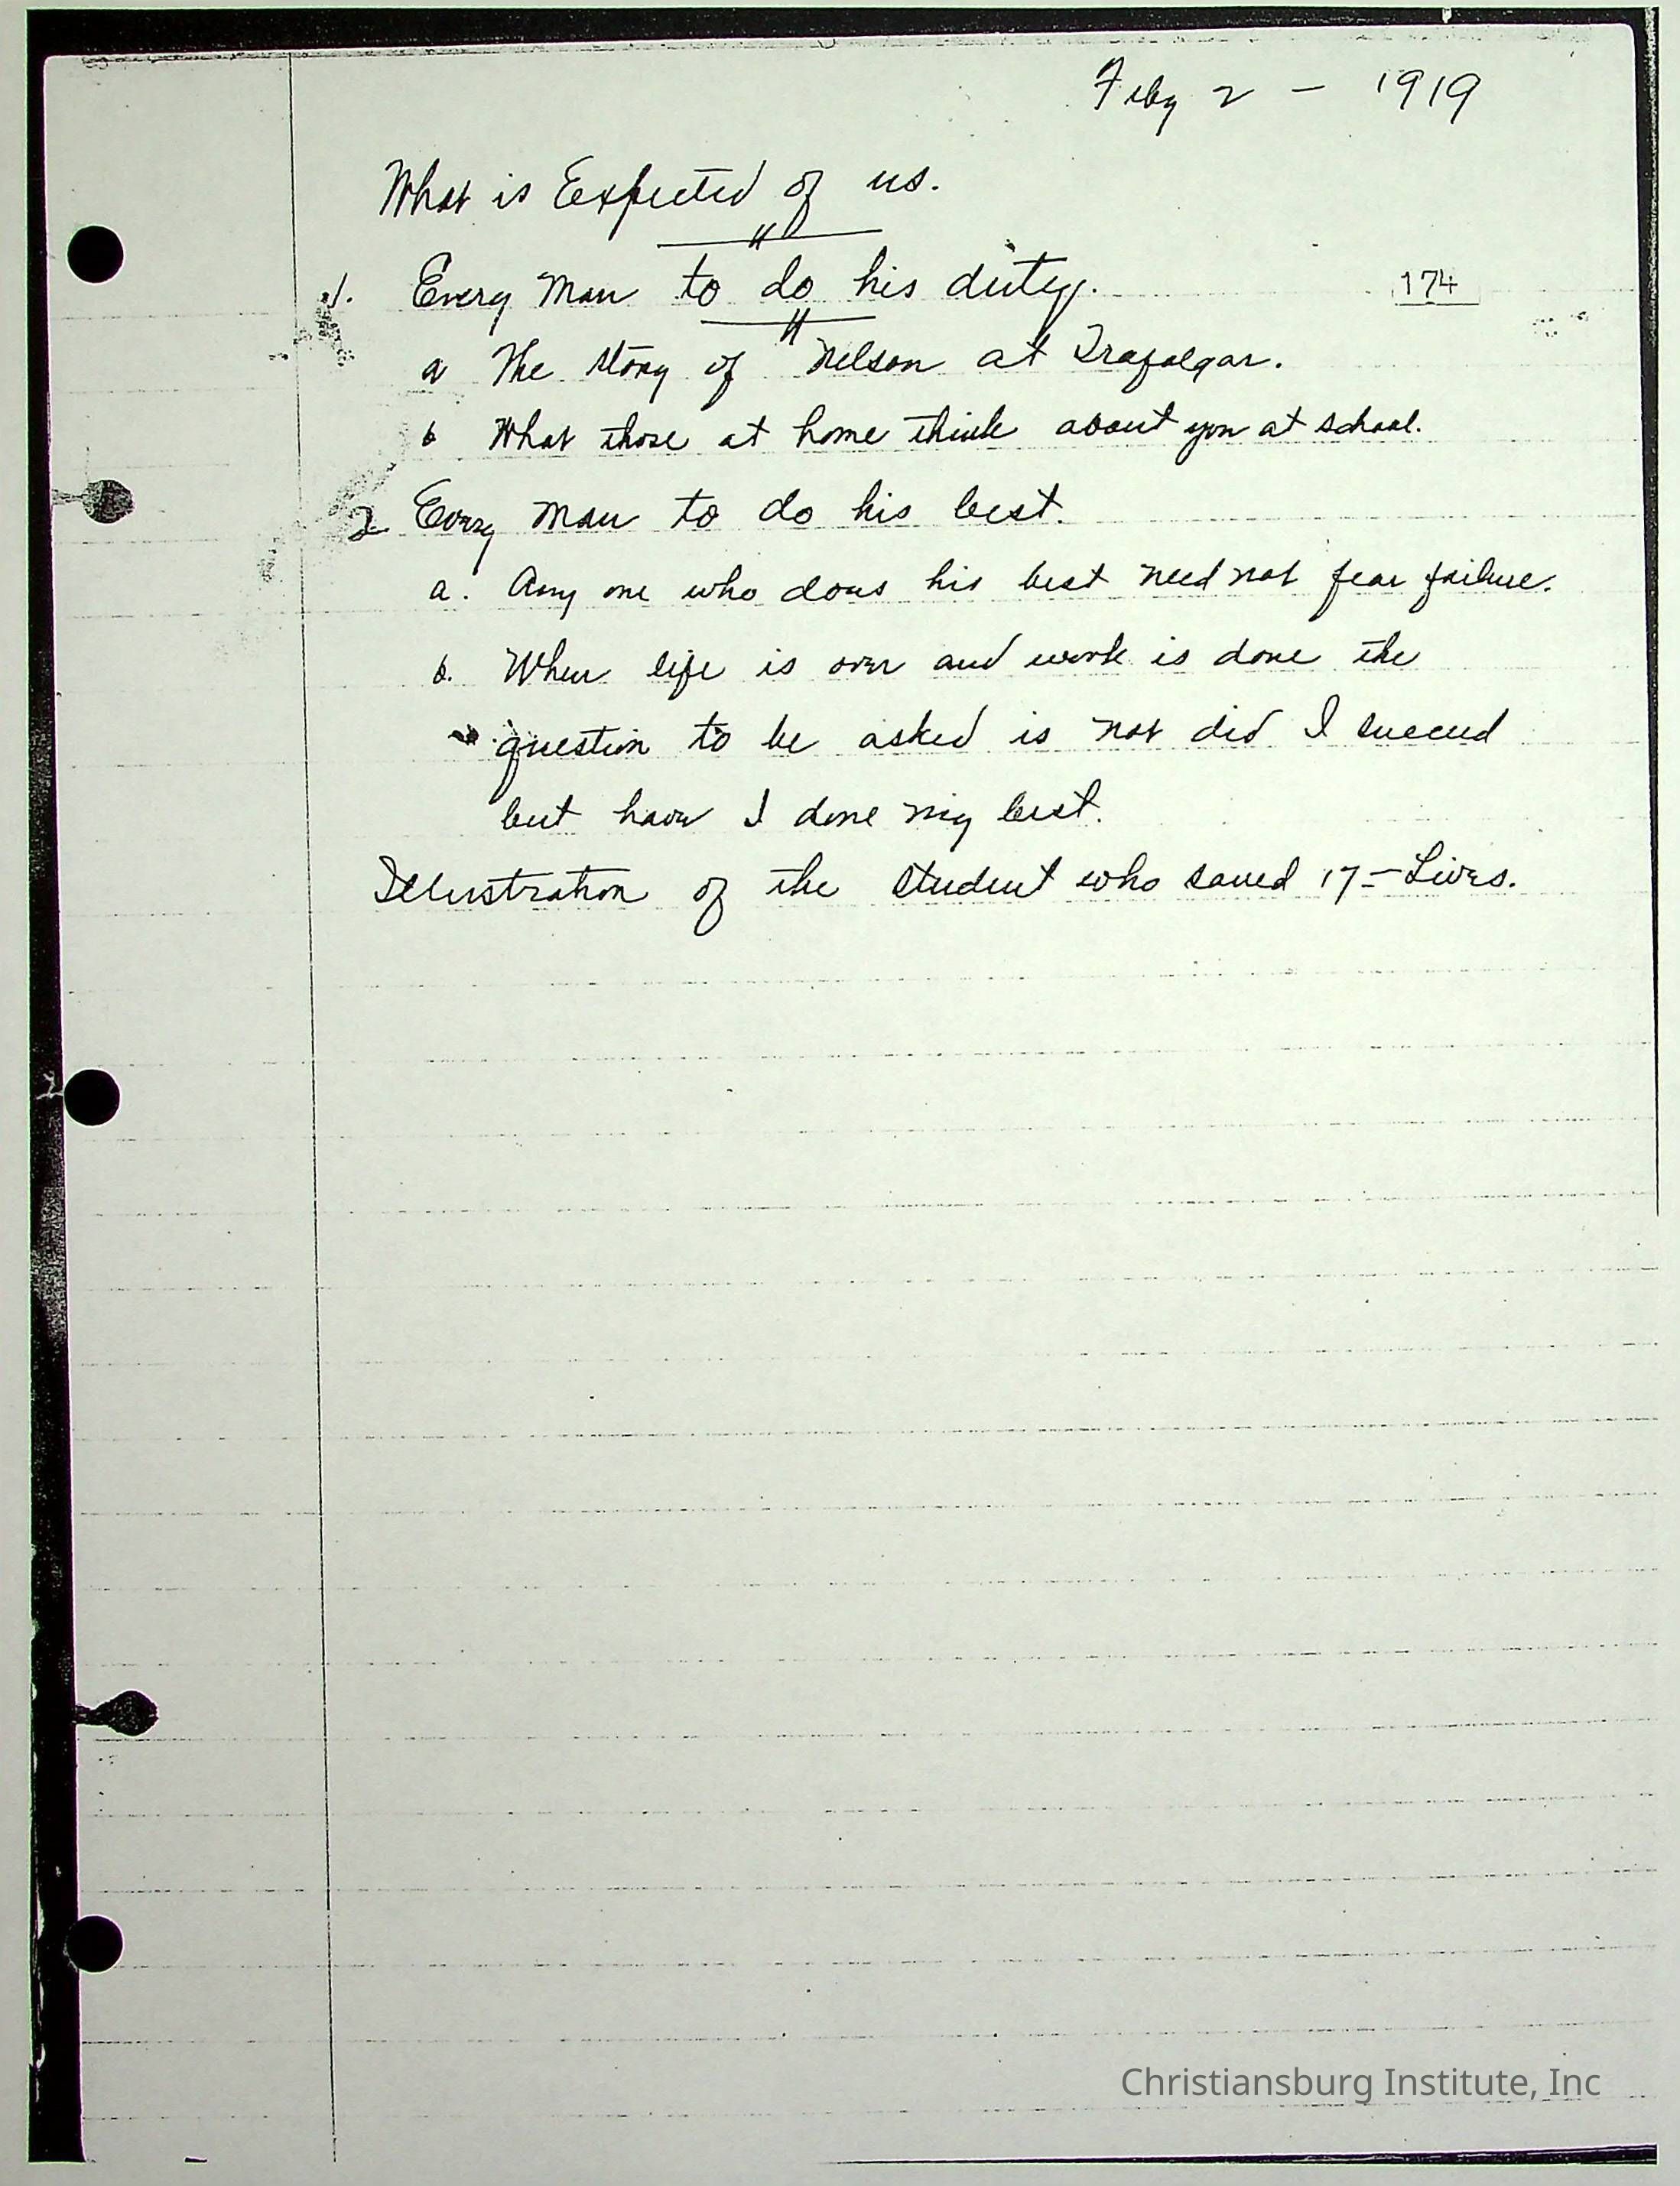 Feby 2 - 1919
What is Expected of us.
1. Every Man to do his duty.
174
a The story of Nelson at Trafalgar.
b What those at home think about you at school.
2 Every man to do his best.
a. Any one who does his best need not fear failure.
b. When life is over and work is done the
question to be asked is not did I succeed
but have I done my best.
Illustration of the student who saved 17 - Lives.
Christiansburg Institute, Inc